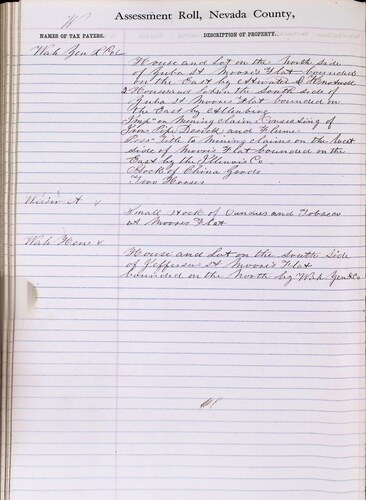 W
Assessment Roll, Nevada County,
NAMES OF TAX PAYERS.
DESCRIPTION OF PROPERTY.
Wah Yen & Co
House and Lot on the North side
of Yuba St Moore's Flat bounded
on the East by Atwater &
2 House and lots on the South side of
Yuba St Moore's Flat bounded on
the East by
Imp on Mining claims Consisting of
Iron Pipe and Flume
Poss Title to Mining claims on the West
side of Moore's Flat bounded on the
East by the Illinois Co
Stock of China Goods
Two Horses
A
Small stock of Candies and Tobacco
at Moore's Flat
Wah
House and Lot on the South side
of Jefferson St Moore's Flat
bounded on the North by Wah Yen & Co